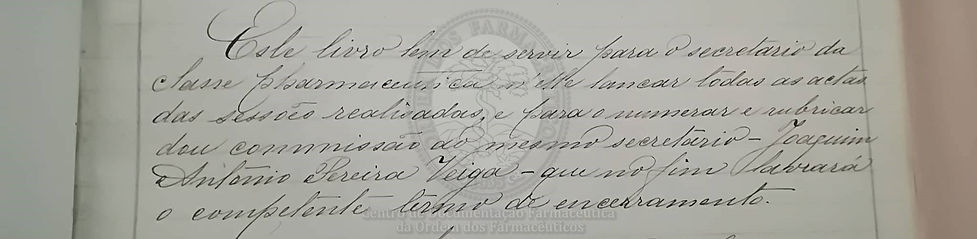 Este livro tem de servir para o secretario da
classe pharmaceutica n'elle lançar todas as actas
das sessões realisadas, e para o numerar e rubricar
dou commissão ao mesmo secretário - Joaquim
Antonio Pereira Veiga - que no fim lavrará
o competente termo de encerramento.
Centro de Documentação Farmacêutica
da Ordem dos Farmacêuticos